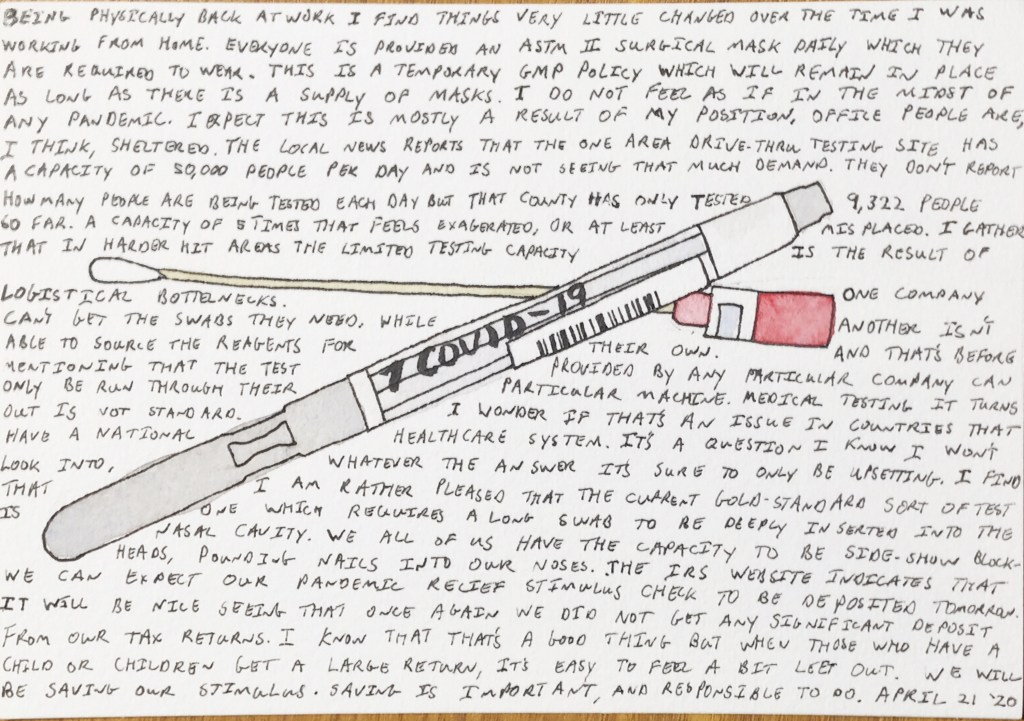 BEING PHYSICALLY BACK AT WORK I FIND THINGS VERY LITTLE CHANGED OVER THE TIME I WAS
WORKING FROM HOME. EVERYONE IS PROVIDED AN ASTM II SURGICAL MASK DAILY WHICH THEY
ARE REQUIRED TO WEAR. THIS IS A TEMPORARY GMP POLICY WHICH WILL REMAIN IN PLACE
AS LONG AS THERE IS A SUPPLY OF MASKS. I DO NOT FEEL AS IF IN THE MIDST OF
ANY PANDEMIC. I EXPECT THIS IS MOSTLY A RESULT OF MY POSITION, OFFICE PEOPLE ARE,
I THINK, SHELTERED. THE LOCAL NEWS REPORTS THAT THE ONE AREA DRIVE-THRU TESTING SITE HAS
A CAPACITY OF 50,000 PEOPLE PER DAY AND IS NOT SEEING THAT MUCH DEMAND. THEY DON'T REPORT
HOW MANY PEOPLE ARE BEING TESTED EACH DAY BUT THAT COUNTY HAS ONLY TESTED 9,322 PEOPLE
SO FAR. A CAPACITY OF 5 TIMES THAT FEELS EXAGERATED, OR AT LEAST MISPLACED. I GATHER
THAT IN HARDER HIT AREAS THE LIMITED TESTING CAPACITY IS THE RESULT OF
LOGISTICAL BOTTELNECKS. ONE COMPANY
CAN'T GET THE SWABS THEY NEED. WHILE ANOTHER ISN'T
ABLE TO SOURCE THE REAGENTS FOR THEIR OWN. AND THAT'S BEFORE
MENTIONING THAT THE TEST PROVIDED BY ANY PARTICULAR COMPANY CAN
ONLY BE RUN THROUGH THEIR PARTICULAR MACHINE. MEDICAL TESTING IT TURNS
OUT IS NOT STANDARD. I WONDER IF THAT'S AN ISSUE IN COUNTRIES THAT
HAVE A NATIONAL HEALTHCARE SYSTEM. IT'S A QUESTION I KNOW I WON'T
LOOK INTO, WHATEVER THE ANSWER IT'S SURE TO ONLY BE UPSETTING. I FIND
THAT I AM RATHER PLEASED THAT THE CURRENT GOLD-STANDARD SORT OF TEST
IS ONE WHICH REQUIRES A LONG SWAB TO BE DEEPLY INSERTED INTO THE
NASAL CAVITY. WE ALL OF US HAVE THE CAPACITY TO BE SIDE-SHOW BLOCK-
HEADS, POUNDING NAILS INTO OUR NOSES. THE IRS WEBSITE INDICATES THAT
WE CAN EXPECT OUR PANDEMIC RELIEF STIMULUS CHECK TO BE DEPOSITED TOMORROW.
IT WILL BE NICE SEEING THAT ONCE AGAIN WE DID NOT GET ANY SIGNIFICANT DEPOSIT
FROM OUR TAX RETURNS. I KNOW THAT THAT'S A GOOD THING BUT WHEN THOSE WHO HAVE A
CHILD OR CHILDREN GET A LARGE RETURN, IT'S EASY TO FEEL A BIT LEFT OUT. WE WILL
BE SAVING OUR STIMULUS. SAVING IS IMPORTANT, AND RESPONSIBLE TO DO. APRIL 21 '20
COVID-19